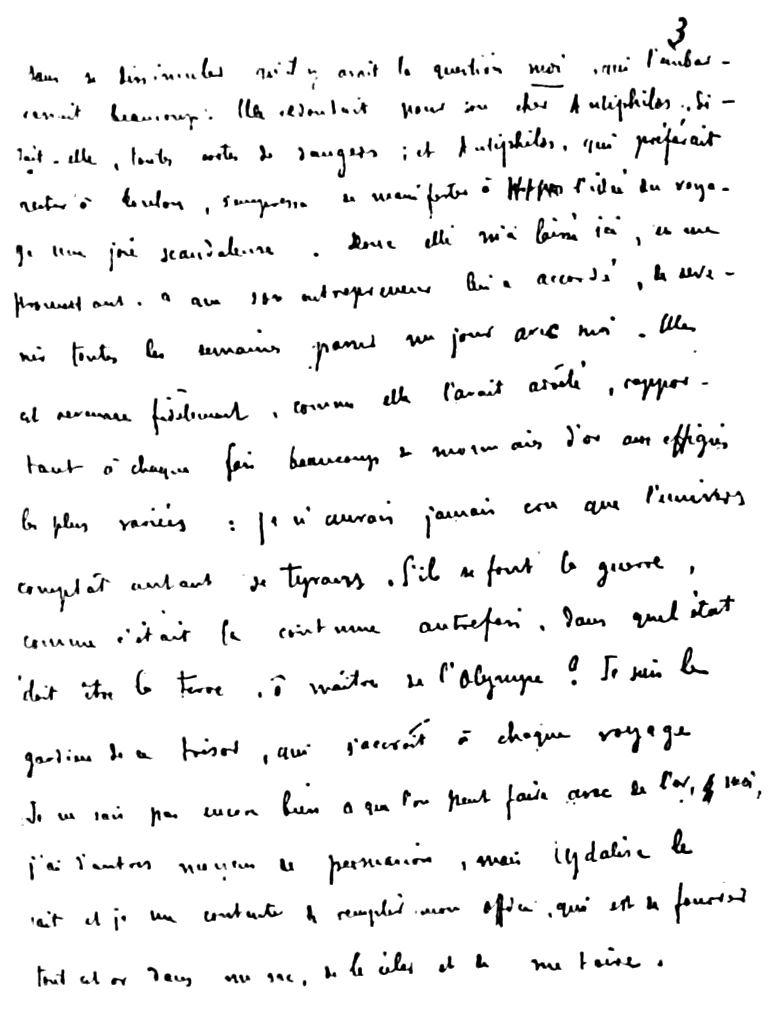 3
sans se dissimuler qu'il y avait la question moi, qui l'embar-
rassait beaucoup. Elle redoutait pour son cher Antiphilos, di-
sait-elle, toutes sortes de dangers ; et Antiphilos, qui préférait
rester à Toulon, s'empressa de manifester à l'idée du voya-
ge une joie scandaleuse. Donc elle m'a laissé ici, en me
promettant, ce que son entrepreneur lui a accordé, de reve-
nir toutes les semaines passer un jour avec moi. Elle
est revenue fidèlement, comme elle l'avait arrêté, rappor-
tant à chaque fois beaucoup de monnaies d'or aux effigies
les plus variées : je n'aurais jamais cru que l'univers
comptât autant de Tyrans. S'ils se font la guerre,
comme c'était la coutume autrefois, dans quel état
doit être la terre, ô maître de l'Olympe ? Je suis le
gardien de ce trésor, qui s'accroît à chaque voyage
Je ne sais pas encore bien ce que l'on peut faire avec de l'or, moi,
j'ai d'autres moyens de persuasion, mais Cydalise le
sait et je me contente de remplir mon office, qui est de fourrer
tout cet or dans un sac, de le celer et de me taire.